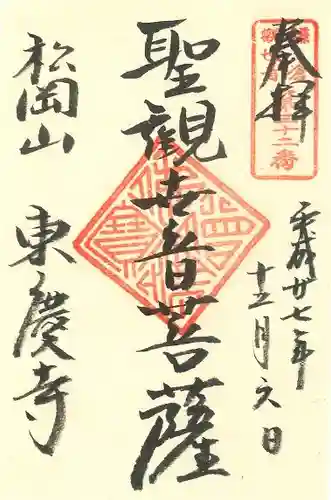 奉拝
平成廿七年
十二月六日
聖觀世音菩薩
松岡山
東慶寺